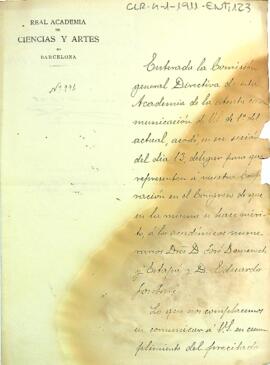 CLR-4-1-1911-ENT,123
REAL ACADEMIA
DE
CIENCIAS Y ARTES
DE
BARCELONA
Enterada la Comisión
general Directiva de esta
Academia de la atenta co-
municación de V. de 1º del
actual, acordó en su sesión
del día 13, delegar para que
representen á nuestra Corpo-
ración en el Congreso de que
en la misma se hace méri-
to, á los académicos nume-
rarios Dres D. José Domenech
y Estapá y D. Eduardo
Fontseré.
Lo que nos complacemos
en comunicar á V.S. en cum-
plimiento del precitado